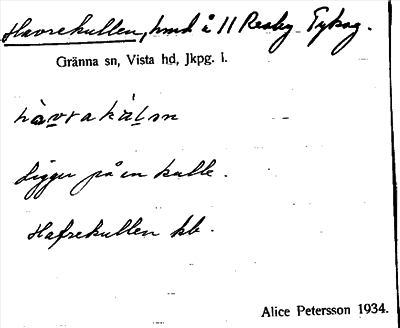 Havrekullen, hmd å 11 Resby Tykag.
Gränna sn, Vista hd, Jkpg. l.
Ligger på en kulle.
Hafrekullen kb.
Alice Petersson 1934.